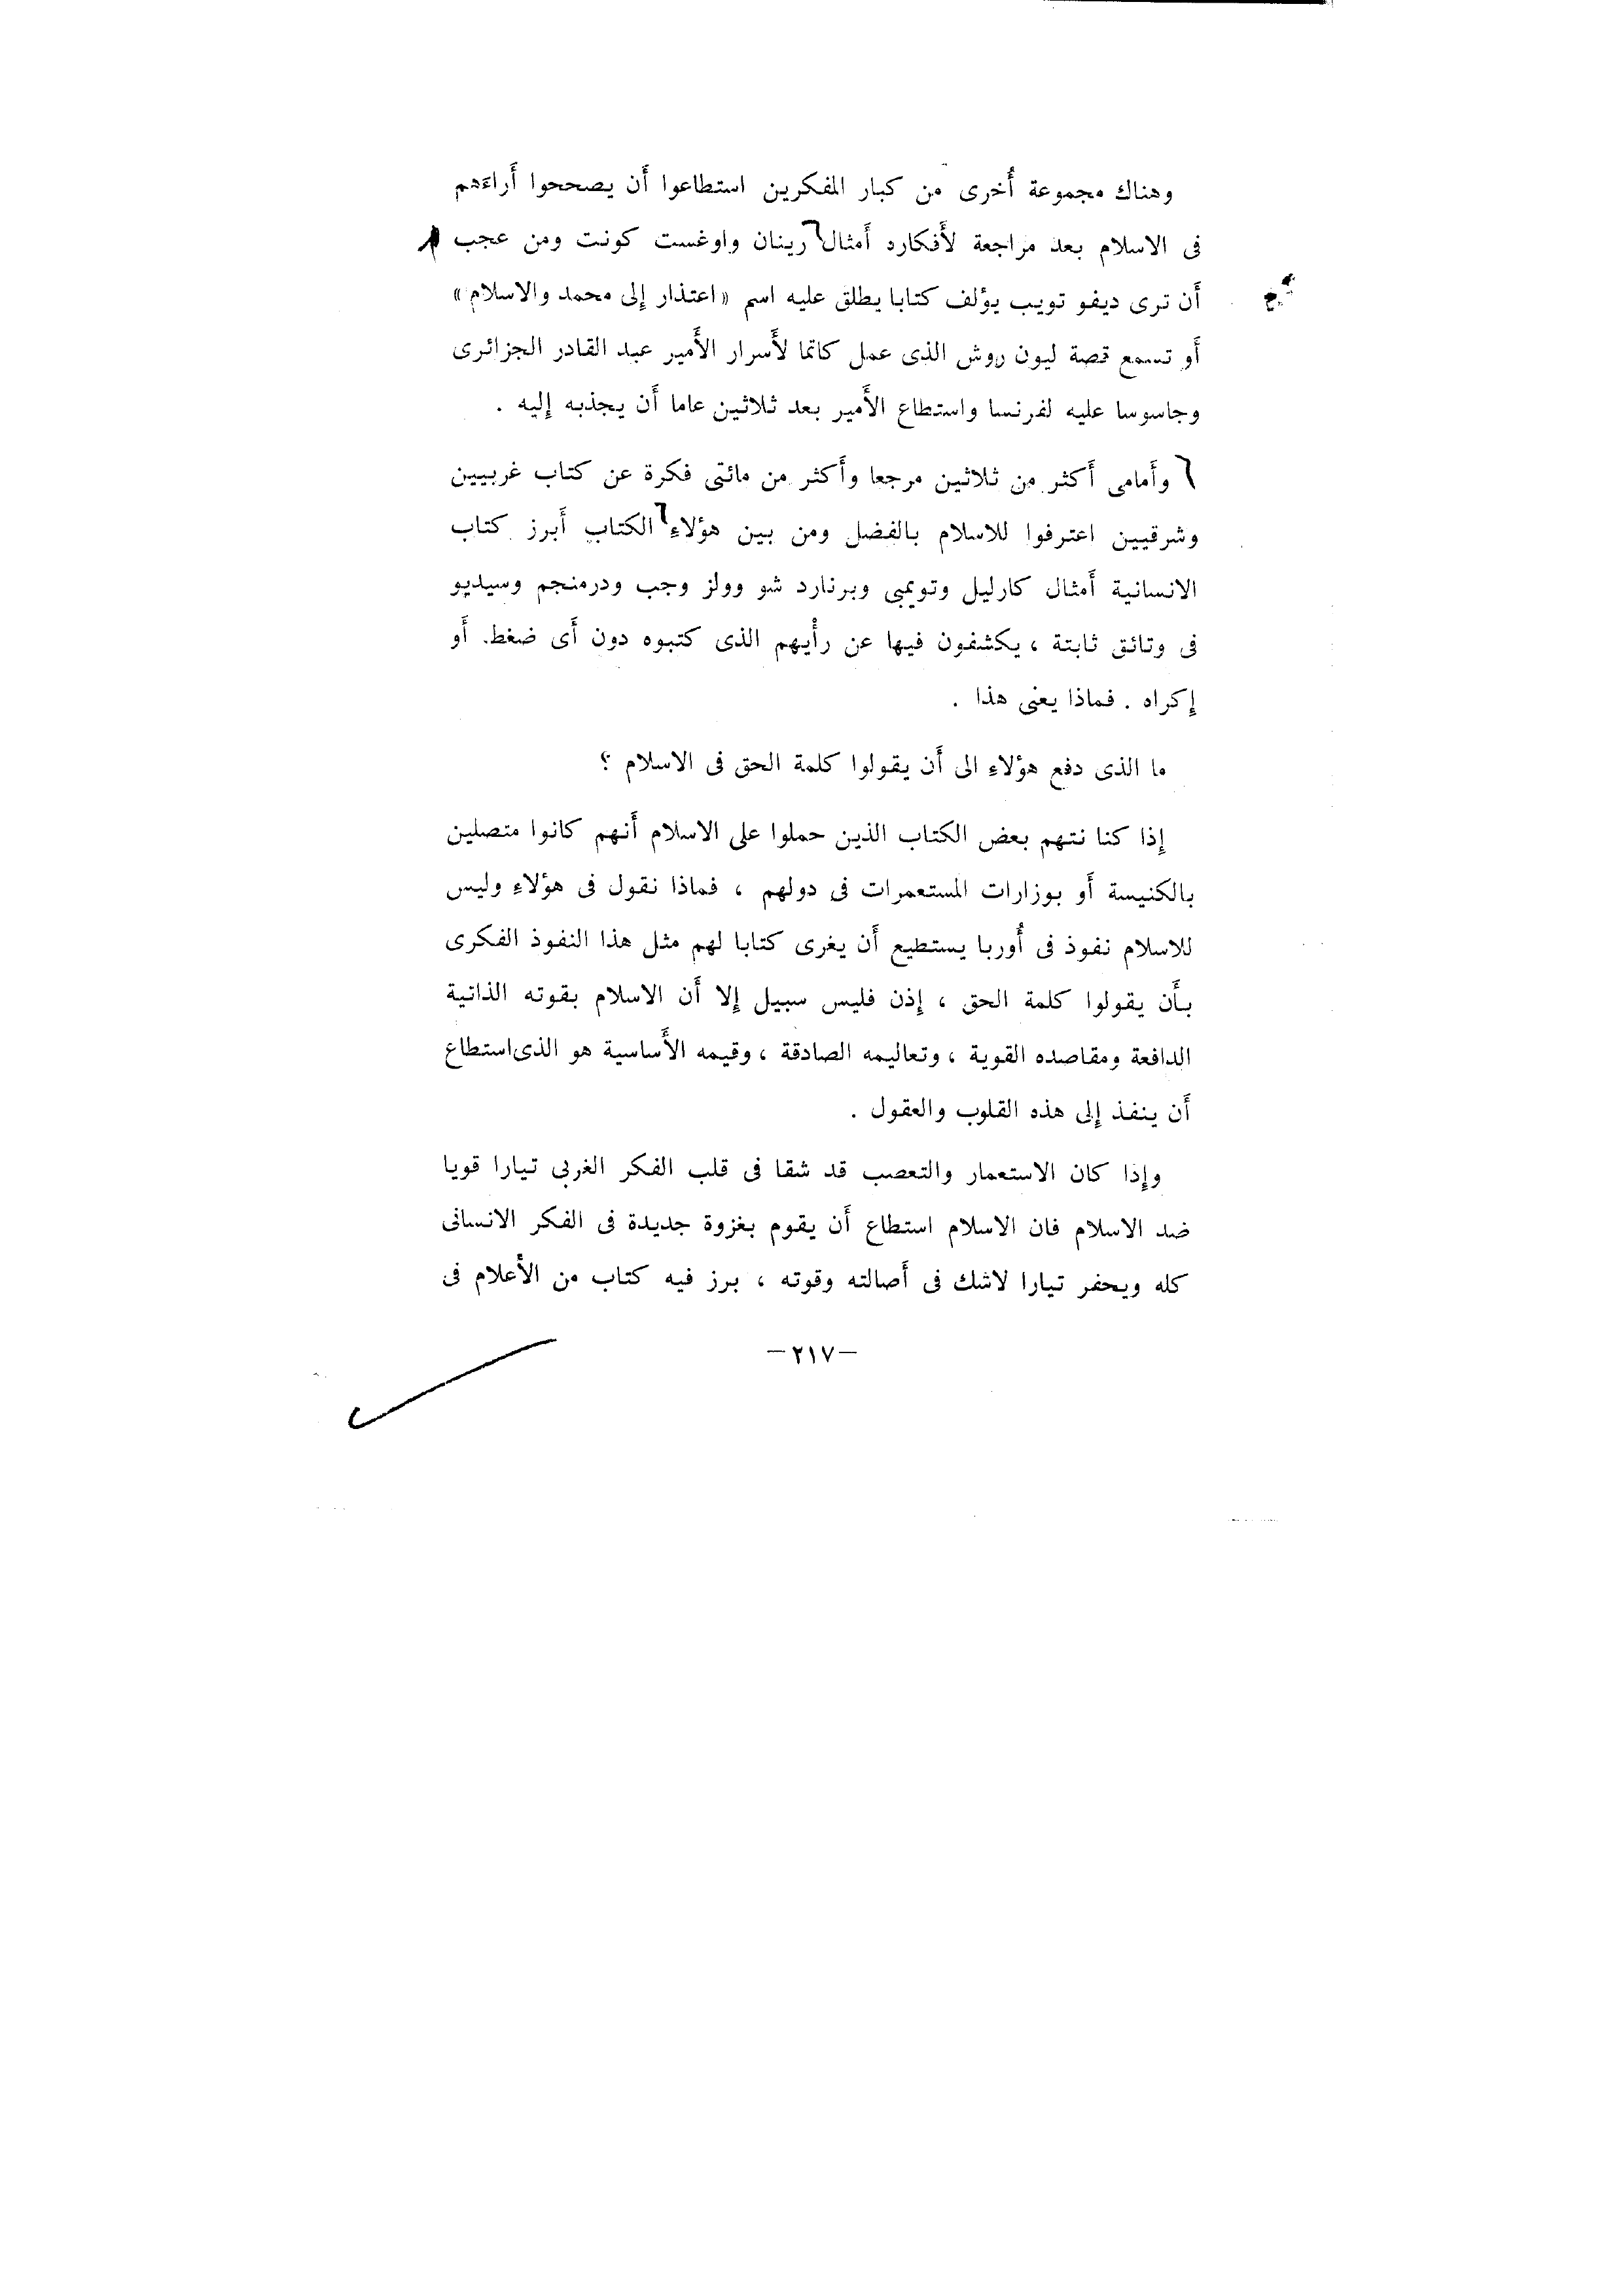 وهناك مجموعة أُخرى من كبار المفكرين استطاعوا أَن يصححوا أَراءَهم
فى الاسلام بعد مراجعة لأَفكاره أَمثال رينان واوغست كونت ومن عجب
أَن ترى ديفو تويب يؤلف كتابا يطلق عليه اسم «اعتذار إلى محمد والاسلام»
أَو تسمع قصة ليون روش الذى عمل كاتما لأَسرار الأَمير عبد القادر الجزائرى
وجاسوسا عليه لفرنسا واستطاع الأَمير بعد ثلاثين عاما أَن يجذبه إليه .
وأَمامى أَكثر من ثلاثين مرجعا وأَكثر من مائتى فكرة عن كتاب غربيين
وشرقيين اعترفوا للاسلام بالفضل ومن بين هؤلاءِ الكتاب أَبرز كتاب
الانسانية أَمثال كارليل وتويمبى وبرنارد شو وولز وجب ودرمنجم وسيديو
فى وثائق ثابتة ، يكشفون فيها عن رأْيهم الذى كتبوه دون أَى ضغط. أَو
إكراه . فماذا يعنى هذا .
ما الذى دفع هؤلاءِ الى أَن يقولوا كلمة الحق فى الاسلام ؟
إذا كنا نتهم بعض الكتاب الذين حملوا على الاسلام أَنهم كانوا متصلين
بالكنيسة أَو بوزارات المستعمرات فى دولهم ، فماذا نقول فى هؤلاءِ وليس
للاسلام نفوذ فى أُوربا يستطيع أَن يغرى كتابا لهم مثل هذا النفوذ الفكرى
بأَن يقولوا كلمة الحق ، إذن فليس سبيل إلا أَن الاسلام بقوته الذاتية
الدافعة ومقاصده القوية ، وتعاليمه الصادقة ، وقيمه الأَساسية هو الذى استطاع
أَن ينفذ إلى هذه القلوب والعقول .
وإذا كان الاستعمار والتعصب قد شقا فى قلب الفكر الغربى تيارا قويا
ضد الاسلام فان الاسلام استطاع أَن يقوم بغزوة جديدة فى الفكر الانسانى
كله ويحفر تيارا لاشك فى أَصالته وقوته ، برز فيه كتاب من الأعلام فى
—٢١٧—